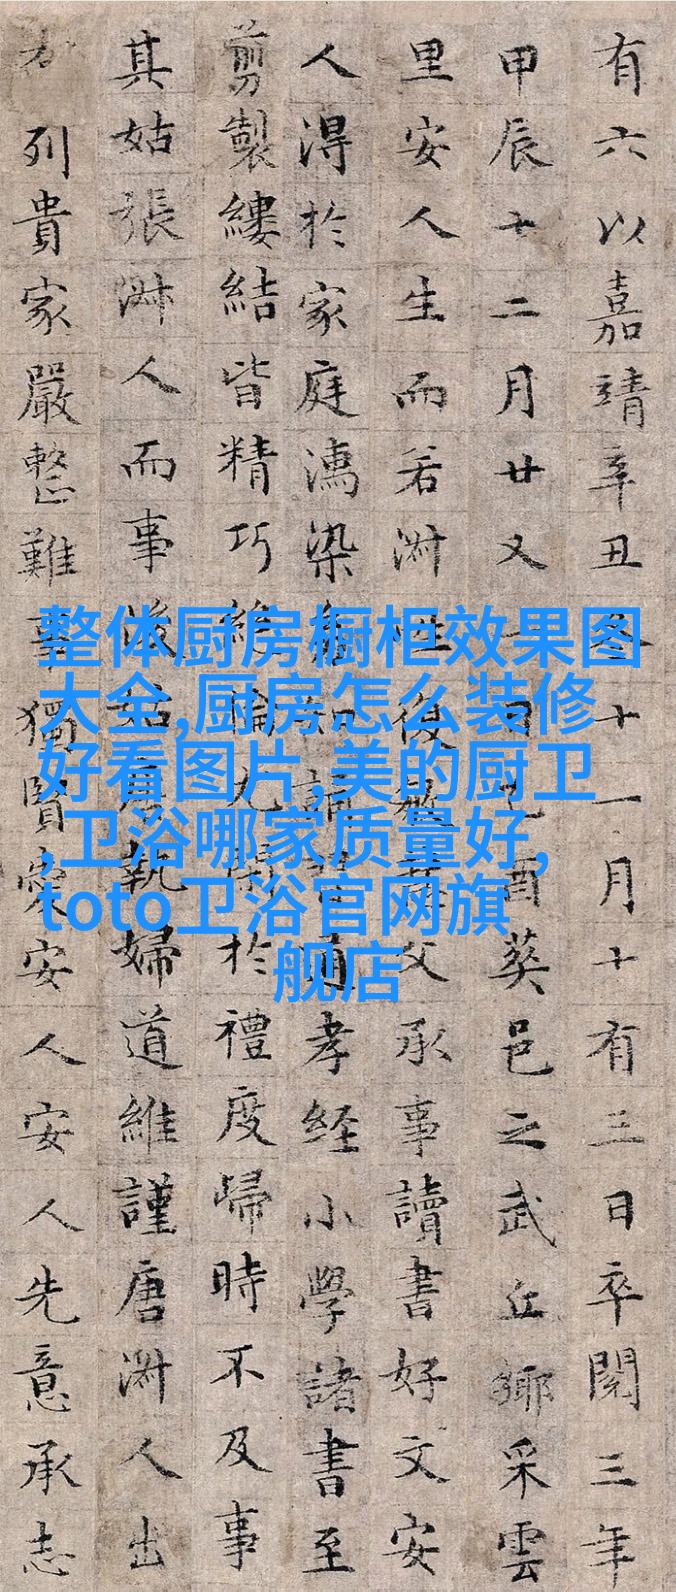 有六以嘉靖辛丑冬十一月十有三日卒閲三年
甲辰十二月廿又一日乙酉葬邑之武丘鄉采雲
里安人生而若淑性復父承事讀書好文安
人得於家庭濡染孝経小學諸書至
剪製縷結皆精巧絶倫尤閑於禮度歸時不及事
其姑張淑人而事後姑唐執婦道維謹唐淑人出
列貴家嚴整難事獨賢愛安人安人先意承志
整体厨房橱柜效果图
大全,厨房怎么装修
好看图片,美的厨卫
,卫浴哪家质量好,
toto卫浴官网旗
舰店